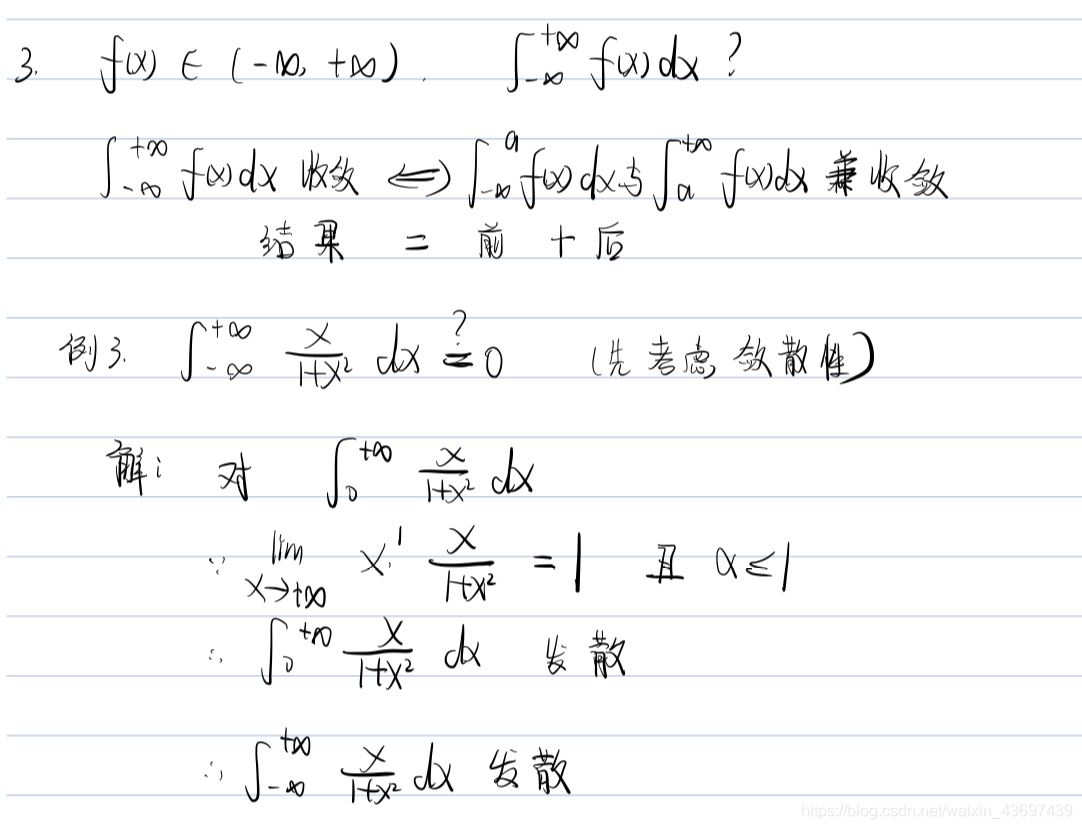 3. f(x) ∈ (-∞, +∞). ∫_{-∞}^{+∞} f(x)dx ?
∫_{-∞}^{+∞} f(x)dx 收敛 ⟺ ∫_{-∞}^{a} f(x)dx 与 ∫_{a}^{+∞} f(x)dx 兼收敛
结果 = 前 + 后
例3. ∫_{-∞}^{+∞} x/(1+x²) dx ?= 0 (先考虑敛散性)
解: 对 ∫_{0}^{+∞} x/(1+x²) dx
∵ lim_{x→+∞} x^1 · x/(1+x²) = 1 且 α≤1
∴ ∫_{0}^{+∞} x/(1+x²) dx 发散
∴ ∫_{-∞}^{+∞} x/(1+x²) dx 发散
https://blog.csdn.net/weixin_43697439